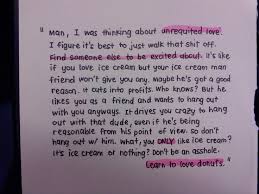 " Man, I was thinking about unrequited love.
I figure it's best to just walk that shit off.
Find someone else to be excited about. it's like
if you love ice cream but your ice cream man
friend won't give you any. Maybe he's got a good
reason. it cuts into profits. Who knows? But he
likes you as a friend and wants to hang out
with you anyways. It drives you crazy to hang
out with that dude, even if he's being
reasonable from his point of view. so don't
hang out w/ him. what, you ONLY like ice cream?
it's ice cream or nothing? don't be an asshole.
Learn to love donuts. "